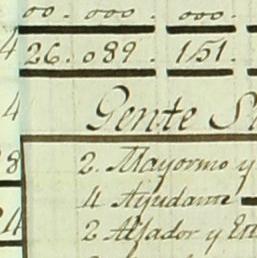 00. 000. 000.
4 26. 089. 151.
4 Gente S
2. Mayormo y
8
4 Ayudante
24 2 Alfador y Ent